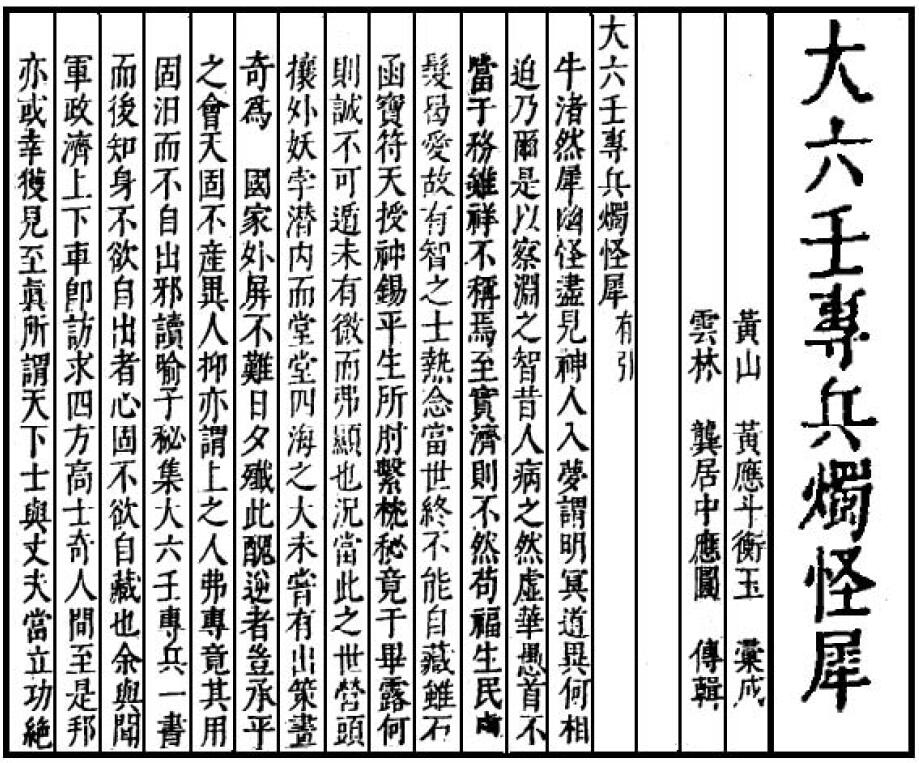 大六壬專兵燭怪犀
黃山　黃應斗衡玉　彙成
雲林　龔居中應圓　傳輯
大六壬專兵燭怪犀
牛渚然犀幽怪盡見神人入夢謂明冥道異何相
迫乃爾是以察淵之智昔人病之然虛華愚首不
當于務雖祥不稱焉至實濟則不然苟福生民
髮曷愛故有智之士熱念當世終不能自藏雖石
函寶符天授神錫平生所肘繫枕秘竟于畢露何
則誠不可遁未有微而弗顯也況當此之世營頭
攘外妖孛潛内而堂堂四海之大未嘗有出策畫
奇爲　國家外屏不難日夕殲此醜逆者豈承平
之會天固不産異人抑亦謂上之人弗專竟其用
固汨而不自出邪讀喻子秘集大六壬專兵一書
而後知身不欲自出者心固不欲自藏也余與聞
軍政濟上下車卽訪求四方高士奇人間至是邦
亦或幸獲見至眞所謂天下士與丈夫當立功絶